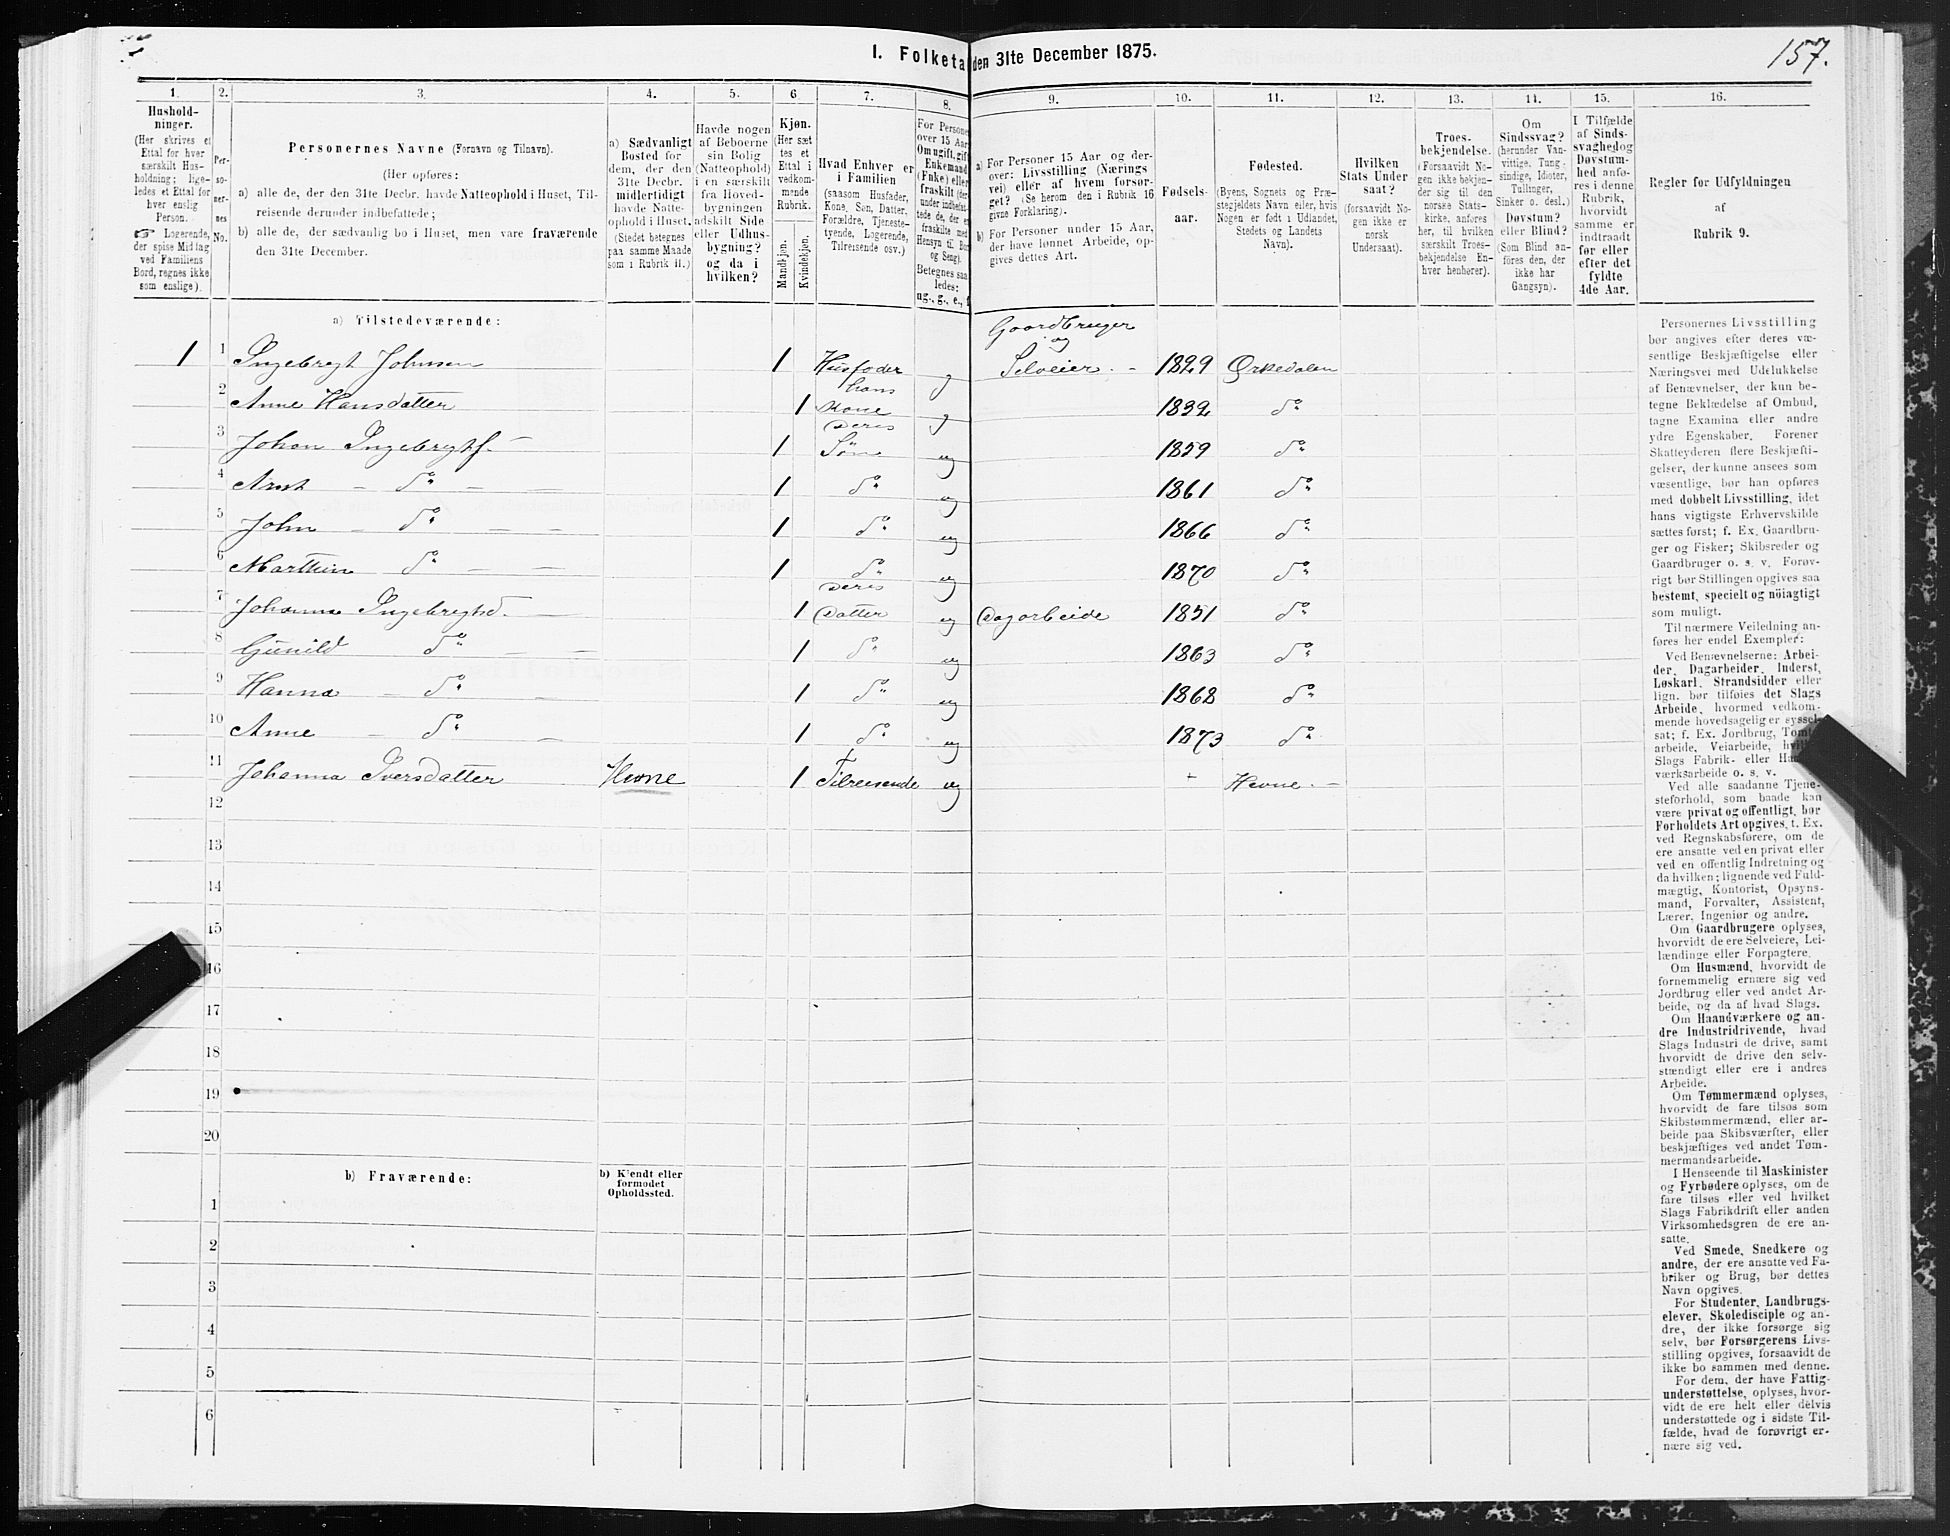 I. Folketæ den 31te December 1875.
157.
1. 2. 3. 4. 5. 6 7. 8. 9. 10. 11. 12. 13. 14. 15. 16.
Hushold-
ninger.
(Her skrives et
Ettal for hver
særskilt Hus-
holdning;
ligeledes et Ettal for
hver enslig
Person.
☞ Logerende,
der spise Middag
ved Familiens
Bord, regnes ikke
som enslige).
Per-
so-
ner-
nes
No.
Personernes Navne (Fornavn og Tilnavn).
(Her opføres:
a) alle de, der den 31te Decbr. havde Natteophold i Huset, Til-
reisende derunder indbefattede;
b) alle de, der sædvanlig bo i Huset, men vare fraværende
den 31te December.
a) Sædvanligt
Bosted for
dem, der den
31te Decbr.
midlertidigt
havde Natte-
ophold i Huset.
(Stedet betegnes
paa samme Maade
som i Rubrik 11.)
Havde nogen
af Beboerne
sin Bolig
(Natteophold)
i en særskilt
fra Hoved-
bygningen
adskilt Side-
eller Udhus-
bygning?
og da i
hvilken?
Kjøn.
(Her sæt-
tes et
Ettal i
vedkom-
mende
Rubrik.
Mandkjøn.
Kvindekjøn.
Hvad Enhver er
i Familien
(saasom Husfader,
Kone, Søn, Datter,
Forældre, Tjeneste-
tyende, Logerende,
Tilreisende osv.)
For Persone
over 15 Aar
Om ugift, gift
Enkemand
(Enke) eller
fraskilt (der-
under indbefat-
tede de, der er
fraskilte med
Hensyn til Bor
og Seng).
Betegnes saa-
ledes:
ug., g., e., f
a) For Personer 15 Aar og der-
over: Livsstilling (Nærings-
vei) eller af hvem forsør-
get? (Se herom den i Rubrik 16
givne Forklaring).
b) For Personer under 15 Aar,
der have lønnet Arbeide, op-
gives dettes Art.
Fødsels-
aar.
Fødested.
(Byens, Sognets og Præ-
stegjeldets Navn eller, hvis
Nogen er født i Udlandet,
Stedets og Landets
Navn).
Hvilken
Stats Under-
saat?
(forsaavidt No-
gen ikke er
norsk
Undersaat).
Troes-
bekjendelse.
(Forsaavidt No-
gen ikke bekjen-
der sig til den
norske Stats-
kirke, anføres
her, til hvilken
særskilt Troes-
bekjendelse En-
hver henhører).
Om
Sindssvag?
(herunder Van-
vittige, Tung-
sindige, Idioter,
Tullinger,
Sinker o. desl.)
Døvstum?
eller Blind?
(Som Blind an-
føres den, der
ikke har
Gangsyn).
I Tilfælde
af Sinds-
svaghed og
Døvstum-
hed anfø-
res i denne
Rubrik,
hvorvidt
samme er
indtraadt
før eller
efter det
fyldte
4de Aar.
Regler for Udfyldningen
af
Rubrik 9.
a) Tilstedeværende:
Gaardbruger
og
1 1 Ingebregt Johnsen 1 Husfader g Selveier. - 1829 Ørkedalen
hans
2 Anne Hansdatter 1 Kone g 1832 do
Deres
3 Johan Ingebrygts. 1 Søn ug 1859 do
4 Arnt do 1 do ug 1861 do
5 John do 1 do ug 1866 do
6 Marthin do 1 do ug 1870 do
Deres
7 Johanna Ingebregtsd. 1 Datter ug Dagarbeide 1851 do
8 Gunild do 1 do ug 1863 do
9 Hanna do 1 do ug 1868 do
10 Anne do 1 do ug 1873 do
11 Johanna Iversdatter Hevne 1 Tilreisende ug - Hevne. -
12
13
14
15
16
17
18
19
20
b) Fraværende:
b) Kjendt eller
formodet
Opholdssted.
1
2
3
4
5
6
Personernes Livsstilling
bør angives efter deres væ-
sentlige Beskjæftigelse eller
Næringsvei med Udelukkelse
af Benævnelser, der kun be-
tegne Beklædelse af Ombud,
tagne Examina eller andre
ydre Egenskaber. Forener
Skatteyderen flere Beskjæfti-
gelser, der kunne ansees som
væsentlige, bør han opføres
med dobbelt Livsstilling, idet
hans vigtigste Erhvervskilde
sættes først; f. Ex. Gaardbru-
ger og Fisker; Skibsreder og
Gaardbruger o. s. v. Forøv-
rigt bør Stillingen opgives saa
bestemt, specielt og nöiagtigt
som muligt.
Til nærmere Veiledning an-
føres her endel Exempler:
Ved Benævnelserne: Arbei-
der, Dagarbeider, Inderst,
Løskarl, Strandsidder eller
lign. bør tilføies det Slags
Arbeide, hvormed vedkom-
mende hovedsagelig er syssel-
sat; f. Ex. Jordbrug, Tømt-
arbeide, Veiarbeide, hvil
Slags Fabrik- eller Ha
værksarbeide o. s. v.
Ved alle saadanne Tjene-
steforhold, som baade kan
være privat og offentligt, bør
Forholdets Art opgives, t. Ex.
ved Regnskabsførere, om de
ere ansatte ved en privat eller
ved en offentlig Indretning og
da hvilken; lignende ved Fuld-
mægtig, Kontorist, Opsyns-
mand, Forvalter, Assistent,
Lærer, Ingeniør og andre.
Om Gaardbrugere oplyses,
hvorvidt de ere Selveiere, Lei-
lændinge eller Forpagtere.
Om Husmænd, hvorvidt de
fornemmelig ernære sig ved
Jordbrug eller ved andet Ar-
beide, og da af hvad Slags.
Om Haandværkere og an-
dre Industridrivende, hvad
Slags Industri de drive, samt
hvorvidt de drive den selv-
stændigt eller ere i andres
Arbeide.
Om Tømmermænd oplyses,
hvorvidt de fare tilsøs som
Skibstømmermænd, eller ar-
beide paa Skibsværfter, eller
beskjæftiges ved andet Tøm-
mermandsarbeide.
I Henseende til Maskinister
og Fyrbødere oplyses, om de
fare tilsøs eller ved hvilket
Slags Fabrikdrift eller anden
Virksomhedsgren de ere an-
satte.
Ved Smede, Snedkere og
andre, der ere ansatte ved Fa-
briker og Brug, bør dettes
Navn opgives.
For Studenter, Landbrugs-
elever, Skoledisciple og an-
dre, der ikke forsørge sig
selv, bør Forsørgerens Livs-
stilling opgives, forsaavidt de
ikke bo sammen med denne.
For dem, der have Fattig-
understøttelse, oplyses, hvor-
vidt de ere helt eller delvis
understøttede og i sidste Til-
fælde, hvad de forøvrigt er-
nære sig ved.